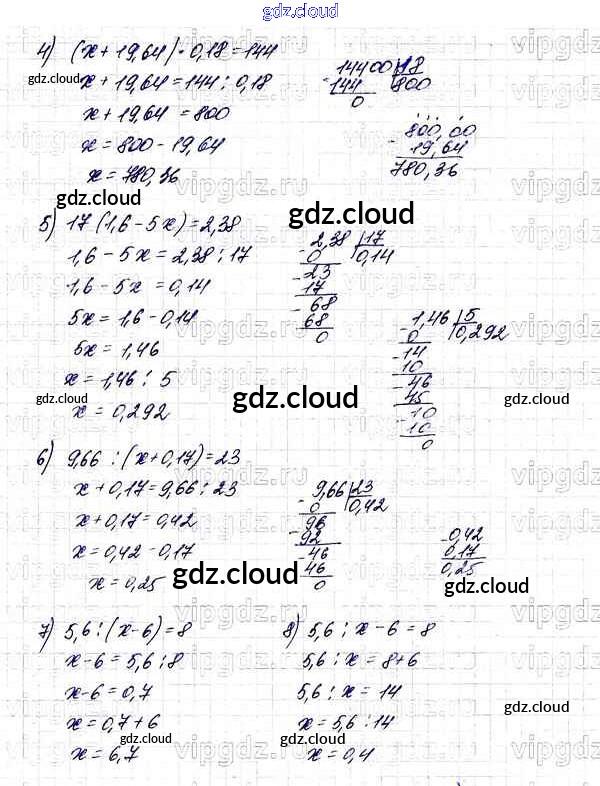 gdz.cloud
gdz.cloud
4) (x + 19,64) · 0,18 = 144
x + 19,64 = 144 : 0,18
x + 19,64 = 800
x = 800 - 19,64
x = 780,36
14400 | 18
- 144 800
0
800,00
- 19,64
780,36
5) 17 (1,6 - 5x) = 2,38
1,6 - 5x = 2,38 : 17
1,6 - 5x = 0,14
5x = 1,6 - 0,14
5x = 1,46
x = 1,46 : 5
x = 0,292
2,38 | 17
- 0 0,14
- 23
17
- 68
68
0
1,46 | 5
- 0 0,292
- 14
10
- 46
45
- 10
10
0
6) 9,66 : (x + 0,17) = 23
x + 0,17 = 9,66 : 23
x + 0,17 = 0,42
x = 0,42 - 0,17
x = 0,25
9,66 | 23
- 0 0,42
96
- 92
- 46
46
0
- 0,42
0,17
0,25
7) 5,6 : (x - 6) = 8
x - 6 = 5,6 : 8
x - 6 = 0,7
x = 0,7 + 6
x = 6,7
8) 5,6 : x - 6 = 8
5,6 : x = 8 + 6
5,6 : x = 14
x = 5,6 : 14
x = 0,4
gdz.cloud
gdz.cloud
gdz.cloud
gdz.cloud
gdz.cloud
gdz.cloud
gdz.cloud
gdz.cloud
gdz.cloud
gdz.cloud
gdz.cloud
gdz.cloud
vipgdz.ru
vipgdz.ru
vipgdz.ru